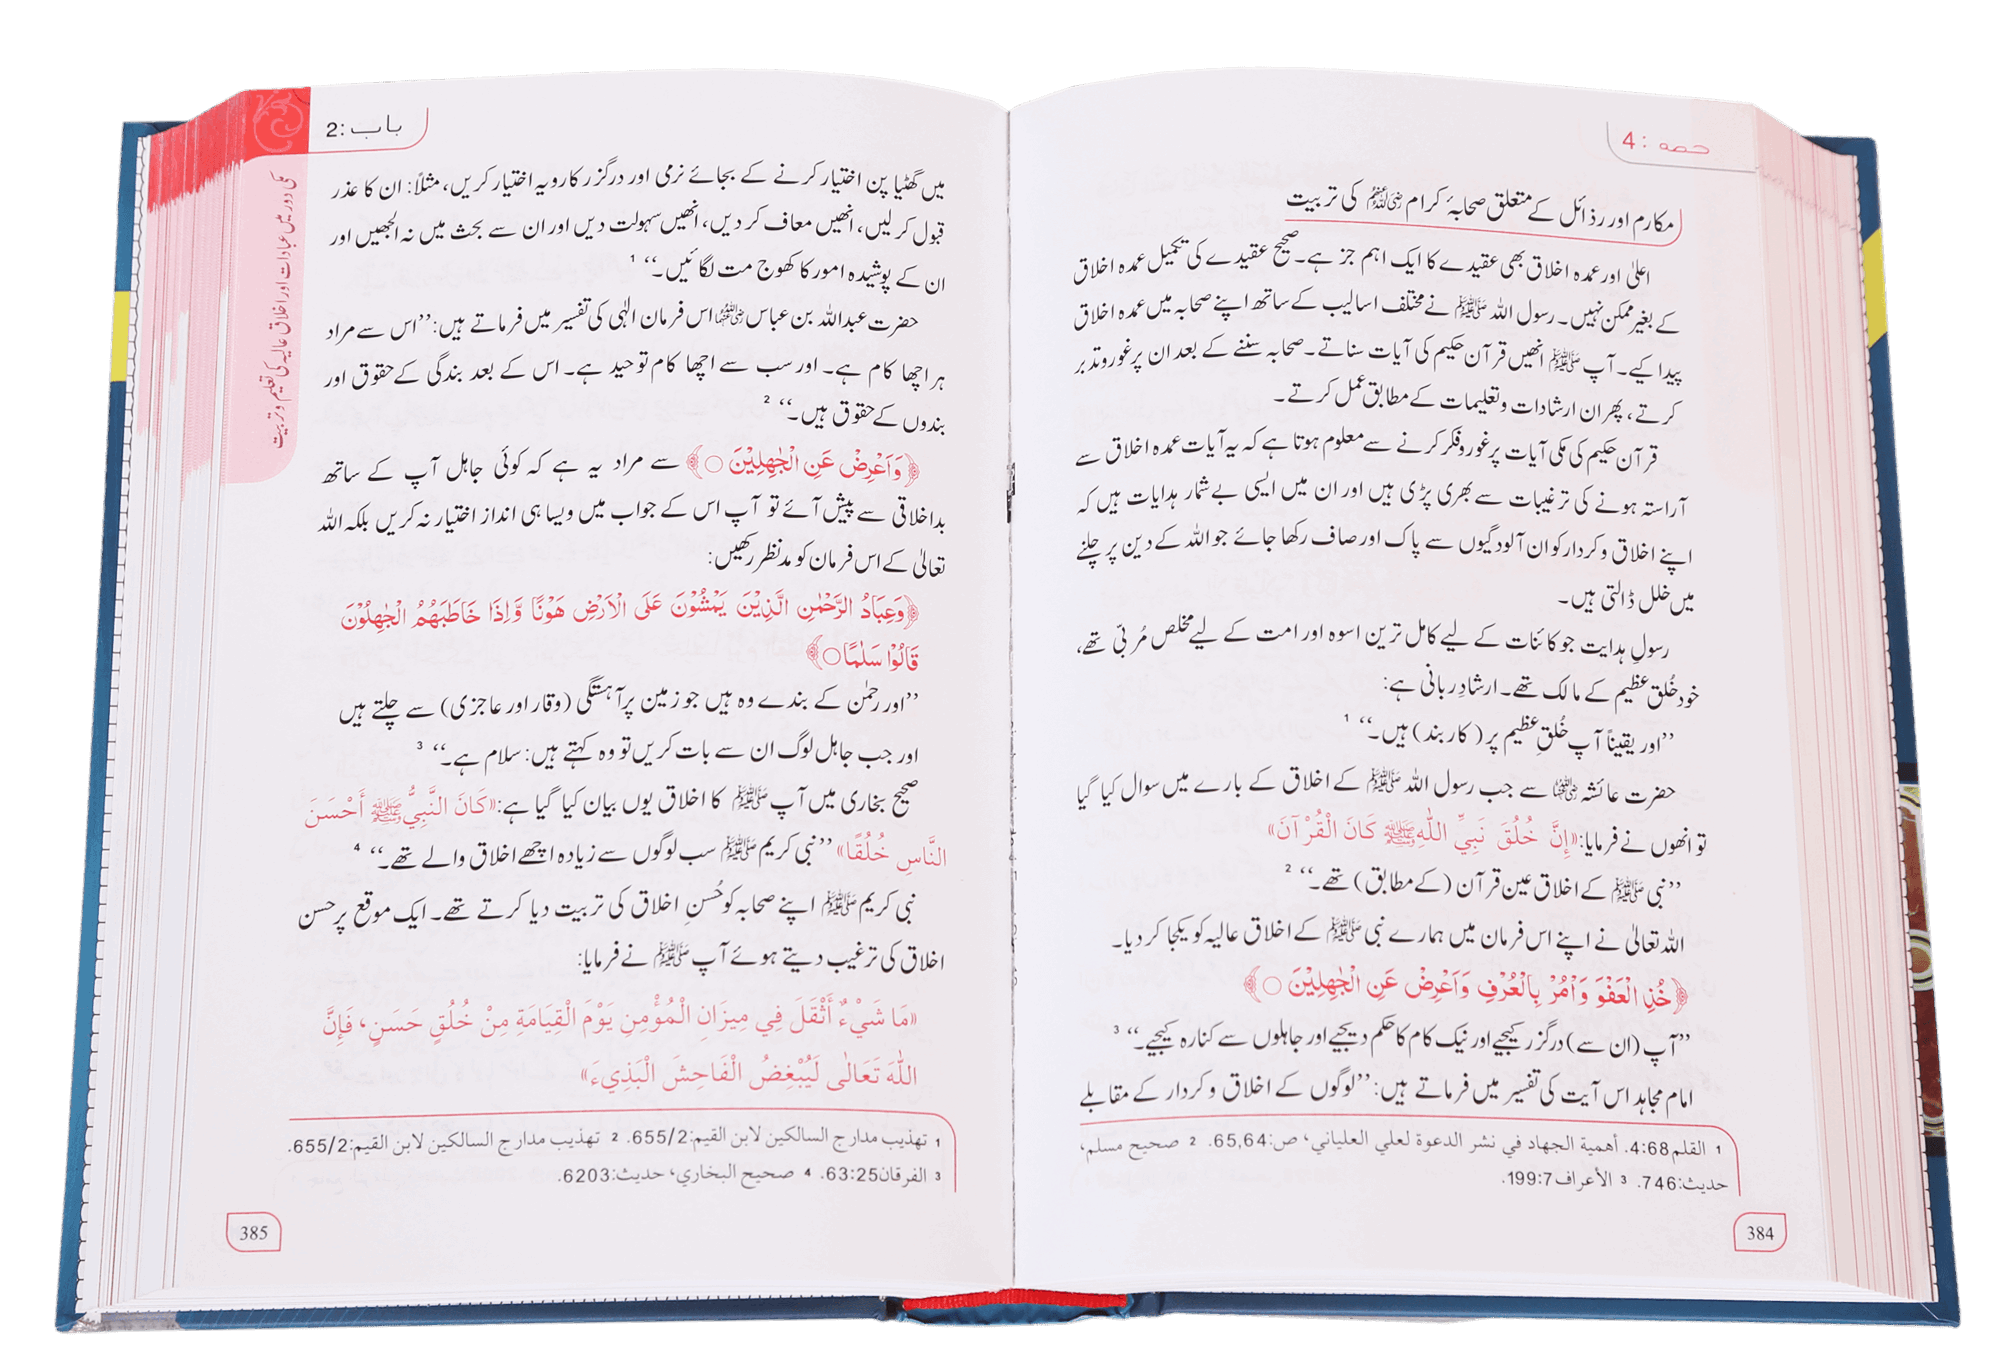 حصه : 4
مکارم اور رذائل کے متعلق صحابۂ کرام رضی اللہ عنہم کی تربیت
اعلیٰ اور عمدہ اخلاق بھی عقیدے کا ایک اہم جز ہے۔ صحیح عقیدے کی تکمیل عمدہ اخلاق
کے بغیر ممکن نہیں۔ رسول اللہ ﷺ نے مختلف اسالیب کے ساتھ اپنے صحابہ میں عمدہ اخلاق
پیدا کیے۔ آپ ﷺ انھیں قرآن حکیم کی آیات سناتے۔ صحابہ سننے کے بعد ان پر غور و تدبر
کرتے، پھر ان ارشادات و تعلیمات کے مطابق عمل کرتے۔
قرآن حکیم کی مکی آیات پر غور و فکر کرنے سے معلوم ہوتا ہے کہ یہ آیات عمدہ اخلاق سے
آراستہ ہونے کی ترغیبات سے بھری پڑی ہیں اور ان میں ایسی بے شمار ہدایات ہیں کہ
اپنے اخلاق و کردار کو ان آلودگیوں سے پاک اور صاف رکھا جائے جو اللہ کے دین پر چلنے
میں خلل ڈالتی ہیں۔
رسولِ ہدایت جو کائنات کے لیے کامل ترین اسوہ اور امت کے لیے مخلص مُربّی تھے،
خود خُلق عظیم کے مالک تھے۔ ارشادِ ربانی ہے:
’’اور یقیناً آپ خُلقِ عظیم پر (کاربند) ہیں۔‘‘ 1
حضرت عائشہ رضی اللہ عنہا سے جب رسول اللہ ﷺ کے اخلاق کے بارے میں سوال کیا گیا
تو انھوں نے فرمایا: «إِنَّ خُلُقَ نَبِيِّ اللّٰهِ ﷺ كَانَ الْقُرْآنَ»
’’نبی ﷺ کے اخلاق عین قرآن (کے مطابق) تھے۔‘‘ 2
اللہ تعالیٰ نے اپنے اس فرمان میں ہمارے نبی ﷺ کے اخلاق عالیہ کو یکجا کر دیا۔
﴿خُذِ الْعَفْوَ وَاْمُرْ بِالْعُرْفِ وَاَعْرِضْ عَنِ الْجٰهِلِيْنَ ○﴾
’’آپ (ان سے) درگزر کیجیے اور نیک کام کا حکم دیجیے اور جاہلوں سے کنارہ کیجیے۔‘‘ 3
امام مجاہد اس آیت کی تفسیر میں فرماتے ہیں: ’’لوگوں کے اخلاق و کردار کے مقابلے
1 القلم 4:68. أهمية الجهاد في نشر الدعوة لعلي العلياني، ص:65,64. 2 صحيح مسلم،
حديث:746. 3 الأعراف 199:7.
384
باب :2
مکی دور میں عبادات اور اخلاق عالیہ کی تعلیم و تربیت
میں گھٹیا پن اختیار کرنے کے بجائے نرمی اور درگزر کا رویہ اختیار کریں، مثلاً: ان کا عذر
قبول کر لیں، انھیں معاف کر دیں، انھیں سہولت دیں اور ان سے بحث میں نہ الجھیں اور
ان کے پوشیدہ امور کا کھوج مت لگائیں۔‘‘ 1
حضرت عبداللہ بن عباس رضی اللہ عنہما اس فرمان الٰہی کی تفسیر میں فرماتے ہیں: ’’اس سے مراد
ہر اچھا کام ہے۔ اور سب سے اچھا کام توحید ہے۔ اس کے بعد بندگی کے حقوق اور
بندوں کے حقوق ہیں۔‘‘ 2
﴿وَاَعْرِضْ عَنِ الْجٰهِلِيْنَ ○﴾ سے مراد یہ ہے کہ کوئی جاہل آپ کے ساتھ
بداخلاقی سے پیش آئے تو آپ اس کے جواب میں ویسا ہی انداز اختیار نہ کریں بلکہ اللہ
تعالیٰ کے اس فرمان کو مدنظر رکھیں:
﴿وَعِبَادُ الرَّحْمٰنِ الَّذِيْنَ يَمْشُوْنَ عَلَى الْاَرْضِ هَوْنًا وَّاِذَا خَاطَبَهُمُ الْجٰهِلُوْنَ
قَالُوْا سَلٰمًا ○﴾
’’اور رحمٰن کے بندے وہ ہیں جو زمین پر آہستگی (وقار اور عاجزی) سے چلتے ہیں
اور جب جاہل لوگ ان سے بات کریں تو وہ کہتے ہیں: سلام ہے۔‘‘ 3
صحیح بخاری میں آپ ﷺ کا اخلاق یوں بیان کیا گیا ہے: «كَانَ النَّبِيُّ ﷺ أَحْسَنَ
النَّاسِ خُلُقًا» ’’نبی کریم ﷺ سب لوگوں سے زیادہ اچھے اخلاق والے تھے۔‘‘ 4
نبی کریم ﷺ اپنے صحابہ کو حُسنِ اخلاق کی تربیت دیا کرتے تھے۔ ایک موقع پر حسن
اخلاق کی ترغیب دیتے ہوئے آپ ﷺ نے فرمایا:
«مَا شَيْءٌ أَثْقَلَ فِي مِيزَانِ الْمُؤْمِنِ يَوْمَ الْقِيَامَةِ مِنْ خُلُقٍ حَسَنٍ، فَإِنَّ
اللّٰهَ تَعَالٰى لَيُبْغِضُ الْفَاحِشَ الْبَذِيءَ»
1 تهذيب مدارج السالكين لابن القيم:655/2. 2 تهذيب مدارج السالكين لابن القيم:655/2.
3 الفرقان 63:25. 4 صحيح البخاري، حديث:6203.
385